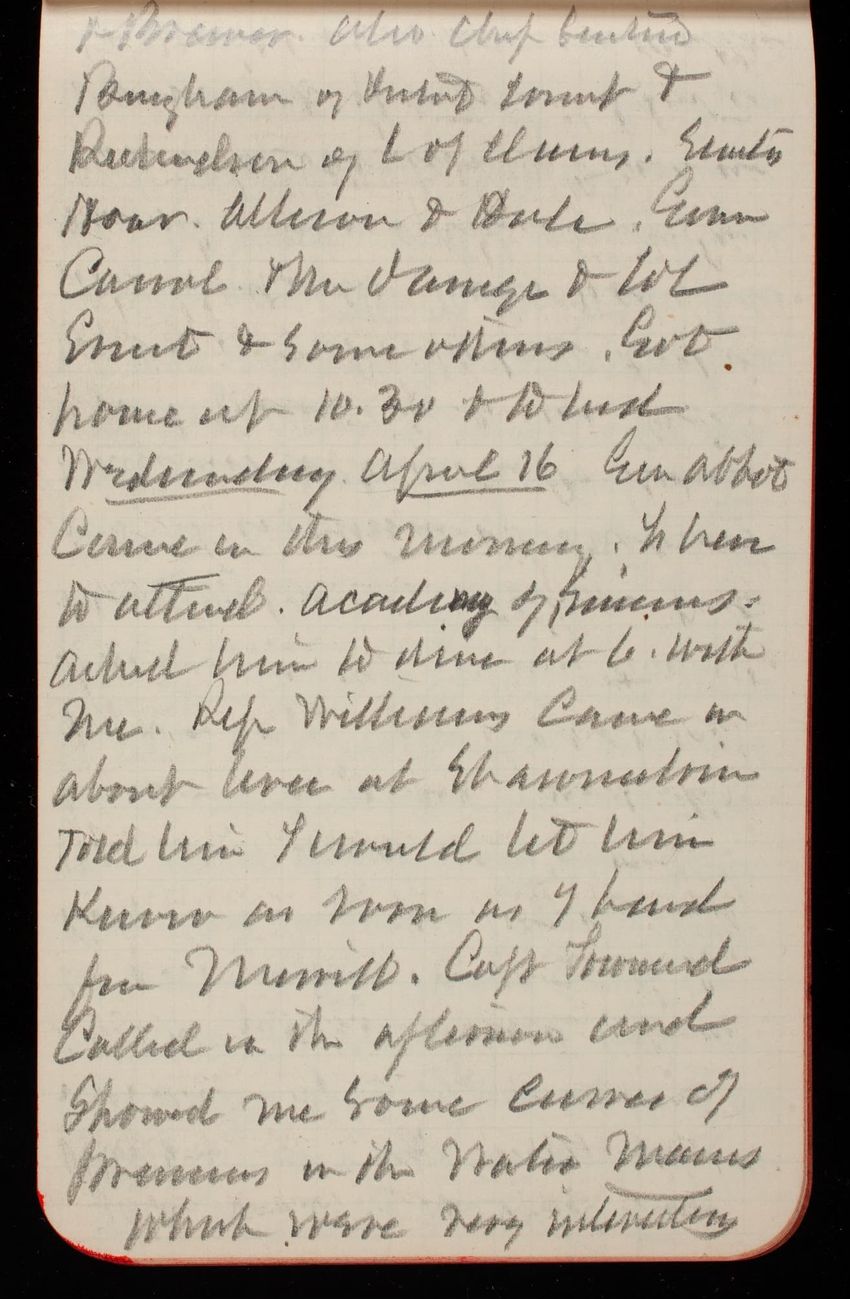 & Brewer. also Chf Justice
Bingham of District Court &
Richardson of C of Claims. Senators
Hoar. Allison & Hale. Genl
Carrol & Col
Ernst & Some others. Got
home at 10.30 & to bed
Wednesday April 16 Gen Abbot
Came in this morning. Is here
to attend. Academy of Sciences.
Asked him to dine at 6. with
me. Rep Williams Came in
about levee at Shawneetown
Told him I would let him
Know as soon as I heard
from Merrill. Capt
Called in the afternoon and
Showed me Some Curves of
pressures in the Water Mains
which were very interesting